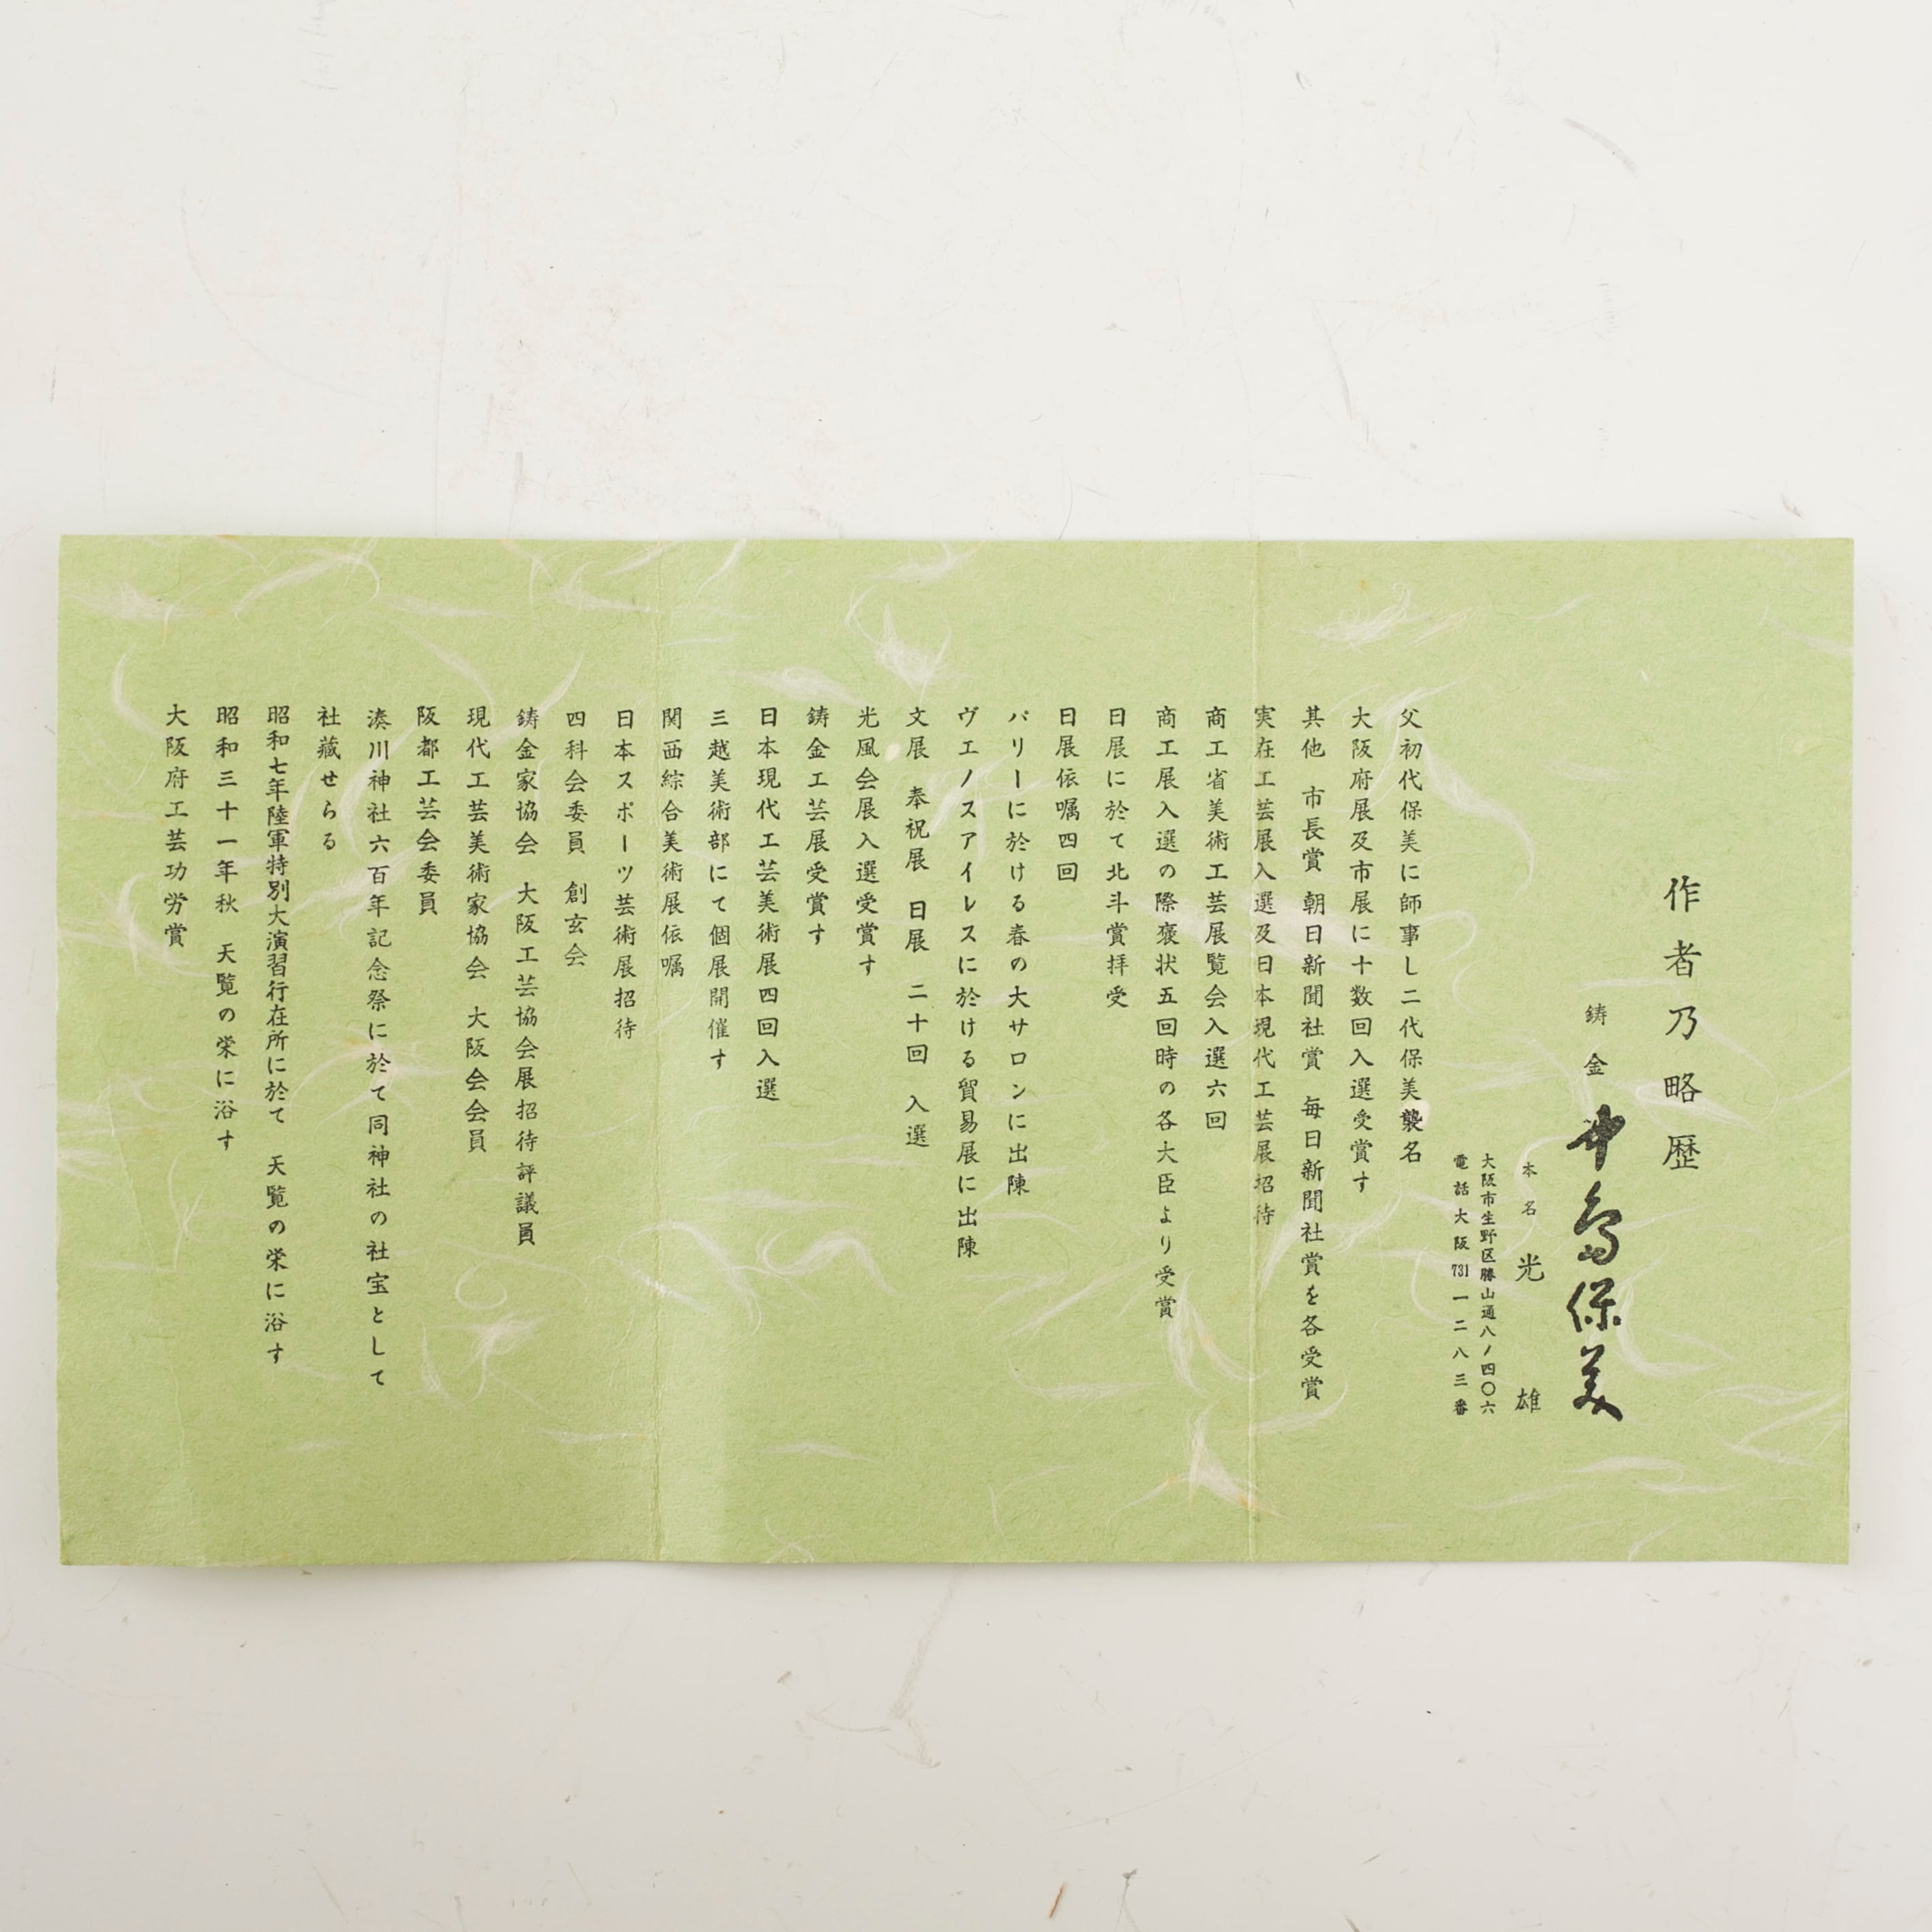 作者乃略歴
鋳金 中島保美
本名 光雄
大阪市生野区勝山通八ノ四〇六
電話大阪731一二八三番
父初代保美に師事し二代保美襲名
大阪府展及市展に十数回入選受賞す
其他 市長賞 朝日新聞社賞 毎日新聞社賞を各受賞
実在工芸展入選及日本現代工芸展招待
商工省美術工芸展覧会入選六回
商工展入選の際褒状五回時の各大臣より受賞
日展に於て北斗賞拝受
日展依嘱四回
パリーに於ける春の大サロンに出陳
ヴエノスアイレスに於ける貿易展に出陳
文展 奉祝展 日展 二十回 入選
光風会展入選受賞す
鋳金工芸展受賞す
日本現代工芸美術展四回入選
三越美術部にて個展開催す
関西綜合美術展依嘱
日本スポーツ芸術展招待
四科会委員 創玄会
鋳金家協会 大阪工芸協会展招待評議員
現代工芸美術家協会 大阪会会員
阪都工芸会委員
湊川神社六百年記念祭に於て同神社の社宝として
社蔵せらる
昭和七年陸軍特別大演習行在所に於て 天覧の栄に浴す
昭和三十一年秋 天覧の栄に浴す
大阪府工芸功労賞